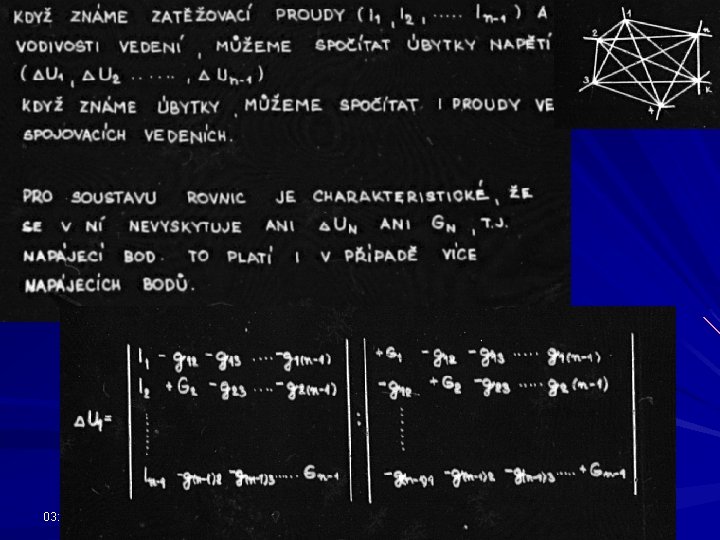 KDYŽ ZNÁME ZATĚŽOVACÍ PROUDY (I1, I2, ..... In-1) A
VODIVOSTI VEDENÍ, MŮŽEME SPOČÍTAT ÚBYTKY NAPĚTÍ
(ΔU1, ΔU2 ......, ΔUn-1)
KDYŽ ZNÁME ÚBYTKY, MŮŽEME SPOČÍTAT I PROUDY VE
SPOJOVACÍCH VEDENÍCH.
1
2
n
3
K
4
PRO SOUSTAVU ROVNIC JE CHARAKTERISTICKÉ, ŽE
SE V NÍ NEVYSKYTUJE ANI ΔUN ANI GN, T.J.
NAPÁJECÍ BOD. TO PLATÍ I V PŘÍPADĚ VÍCE
NAPÁJECÍCH BODŮ.
I1 -g12 -g13 ..... -g1(n-1) +G1 -g12 -g13 ..... g1(n-1)
I2 +G2 -g23 ..... -g2(n-1) -g12 +G2 -g23 ..... g2(n-1)
ΔU1= :
In-1 -g(n-1)2 -g(n-1)3 ..... Gn-1 -g(n-1)1 -g(n-1)2 -g(n-1)3 ..... +Gn-1
03: